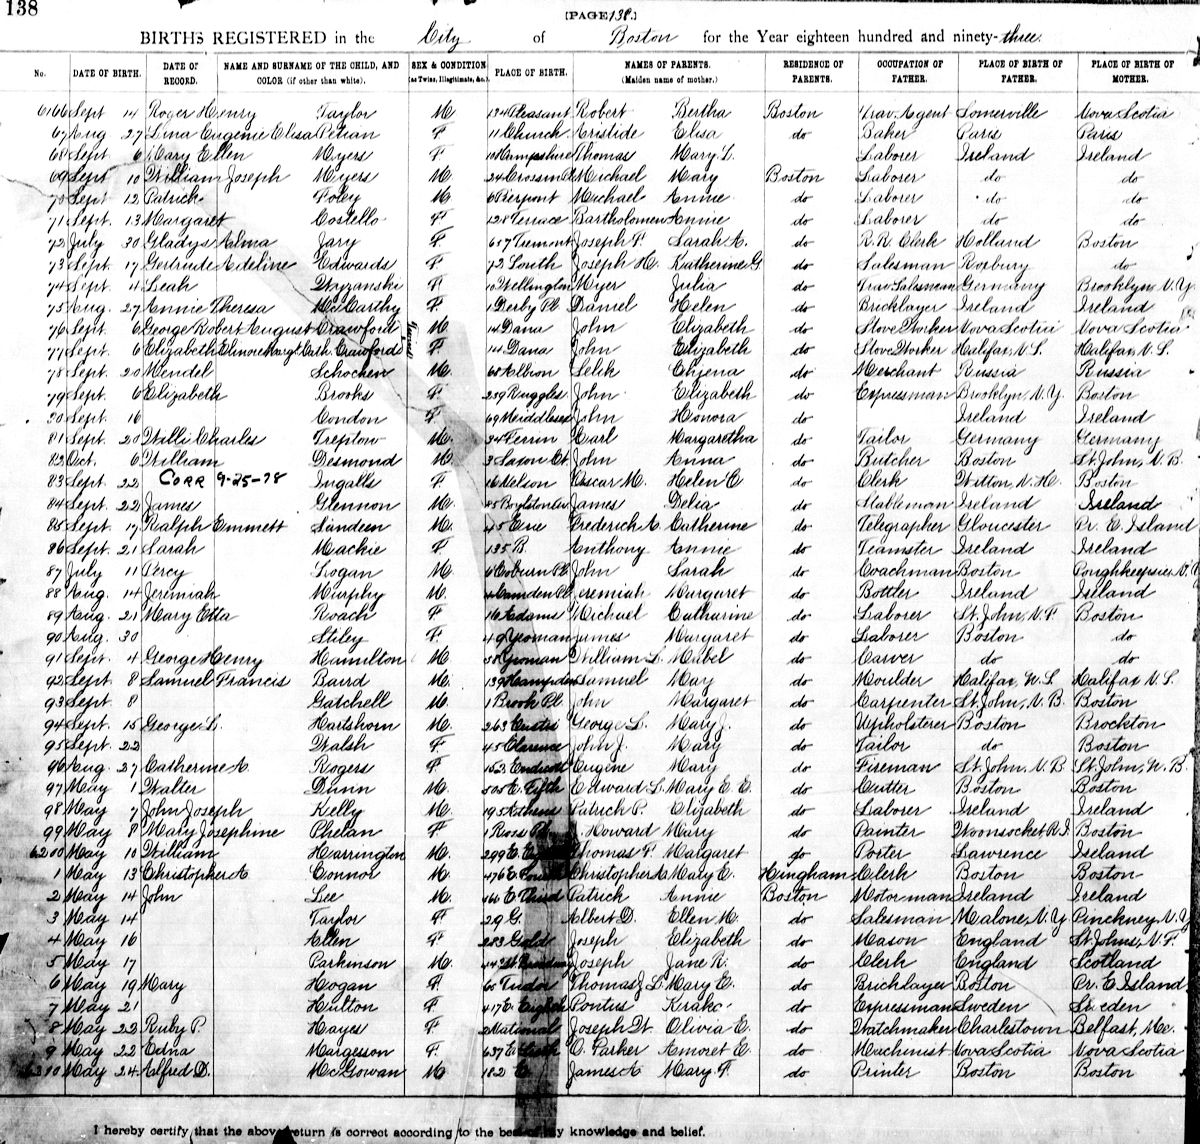 138
[PAGE 138.]
BIRTHS REGISTERED in the City of Boston for the Year eighteen hundred and ninety-three.
No. DATE OF BIRTH. DATE OF RECORD. NAME AND SURNAME OF THE CHILD, AND COLOR (if other than white). SEX & CONDITION (as Twins, Illegitimate, &c.) PLACE OF BIRTH. NAMES OF PARENTS. (Maiden name of mother.) RESIDENCE OF PARENTS. OCCUPATION OF FATHER. PLACE OF BIRTH OF FATHER. PLACE OF BIRTH OF MOTHER.
6166 Sept 14 Roger Henry Taylor M 124 Pleasant Robert Bertha Boston Trav. Agent Somerville Nova Scotia
67 Aug 27 Lina Eugenie Elisa Petian F 11 Church Aristide Elisa do Baker Paris Paris
68 Sept 6 Mary Ellen Myers F Hampshire Thomas Mary L. Laborer Ireland Ireland
69 Sept 10 William Joseph Myers M 24 Crossin Pl Michael Mary Boston Laborer do do
70 Sept 12 Patrick Foley M 6 Pierpont Michael Annie do Laborer do do
71 Sept. 13 Margaret Costello F 128 Terrace Bartholomew Annie do Laborer do do
72 July 30 Gladys Alma Jary F. 657 Tremont Joseph P. Sarah A. do R.R. Clerk Holland Boston
73 Sept. 17 Gertrude Adeline Edwards F 72 South Joseph H. Katherine G. do Salesman Roxbury do
74 Sept 4 Leah Wyzanski F 10 Wellington Myer Julia do Trav. Salesman Germany Brooklyn, N.Y.
75 Aug. 27 Annie Theresa McCarthy F 1 Derby Pl Daniel Helen do Bricklayer Ireland Ireland
76 Sept. 6 George Robert August Crawford M 14 Dana John Elizabeth do Stove Worker Nova Scotia Nova Scotia
77 Sept. 6 Elizabeth Elinore Margt Cath. Crawford F. 14 Dana John Elizabeth do Stove Worker Halifax, N.S. Halifax, N.S.
78 Sept. 20 Mendel Schocken M. 68 Albion Selik Chjena do Merchant Russia Russia
79 Sept. 6 Elizabeth Brooks F 259 Ruggles John Elizabeth do Expressman Brooklyn, N.Y. Boston
80 Sept. 16 Condon F. 69 Middlesex John Honora do Ireland Ireland
81 Sept. 20 Willi Charles Treptow M. 34 Perrin Carl Margaretha do Tailor Germany Germany
82 Oct. 6 William Desmond M. 3 Saxon Ct John Anna do Butcher Boston St John, N.B.
83 Sept. 22 CORR 9-25-78 Ingalls F 16 Nelson Oscar M. Helen C do Clerk Witton, N.H. Boston
84 Sept. 22 James Glennon M. 45 Boylston Av James Delia do Stableman Ireland Ireland
85 Sept 17 Ralph Emmett Sandeen M. 45 Erie Frederick A. Catherine do Telegrapher Gloucester Pr. E. Island
86 Sept. 21 Sarah Mackie F. 135 B. Anthony Annie do Teamster Ireland Ireland
87 July 11 Percy Logan M. 6 Coburn Pl John Sarah do Coachman Boston Poughkeepsie, N.Y
88 Aug. 14 Jeremiah Murphy M. Camden Pl Jeremiah Margaret do Bottler Ireland Ireland
89 Aug. 21 Mary Etta Roach F. 16 Adams Michael Catharine do Laborer St. John, N.F. Boston
90 Aug. 30 Stiley F. 49 Yeoman James Margaret do Laborer Boston do
91 Sept. 4 George Henry Hamilton M. 38 Yeoman William L. Mabel do Carver do do
92 Sept 8 Samuel Francis Baird M. 139 Hampden Samuel May do Moulder Halifax, N.S Halifax N.S.
93 Sept 8 Gatchell M. 1 Brook Pl. John Margaret do Carpenter St. John, N.B. Boston
94 Sept. 15 George L. Hartshorn M. 263 Eustis George L. Mary J. do Upholsterer Boston Brockton
95 Sept. 22 Walsh F 45 Clarence John J. Mary do Tailor do Boston
96 Aug. 27 Catherine A. Rogers F. 152 Endicott Eugene Mary do Fireman St. John, N.B St. John, N.B.
97 May 1 Walter Dunn M. 505 E. Fifth Edward L. Mary E. E. do Cutter Boston Boston
98 May 7 John Joseph Kelly M. 195 Athens Patrick P. Elizabeth do Laborer Ireland Ireland
99 May 8 Mary Josephine Phelan F 1 Ross Pl Howard Mary do Painter Woonsocket R.I. Boston
6200 May 10 William Harrington M. 299 E. Thomas F. Margaret do Porter Lawrence Ireland
1 May 13 Christopher A Connor M. 476 E. Fourth Christopher A. Mary E. Hingham Clerk Boston Boston
2 May 14 John Lee M. E. Third Patrick Annie Boston Motorman Ireland Ireland
3 May 14 Taylor F 29 G. Albert D. Ellen M. do Salesman Malone, N.Y Pinckney, N.Y
4 May 16 Allen F 283 Gold Joseph Elizabeth do Mason England St. Johns, N.F.
5 May 17 Parkinson M. Joseph Jane R. do Clerk England Scotland
6 May 19 Mary Hogan F. 65 Tudor Thomas J. L. Mary E. do Bricklayer Boston Pr. E Island
7 May 21 Hulton F. 417 E. Eighth Pontus Krake do Expressman Sweden Sweden
8 May 23 Ruby P. Hayes F. 2 National Joseph W. Olivia E. do Watchmaker Charlestown Belfast, Me.
9 May 22 Edna Margesson F. 637 E. Sixth O. Parker Amoret E. do Machinist Nova Scotia Nova Scotia
May 24 Alfred D. McGowan M 182 James A Mary F. do Printer Boston Boston
I hereby certify that the above return is correct according to the best of my knowledge and belief.